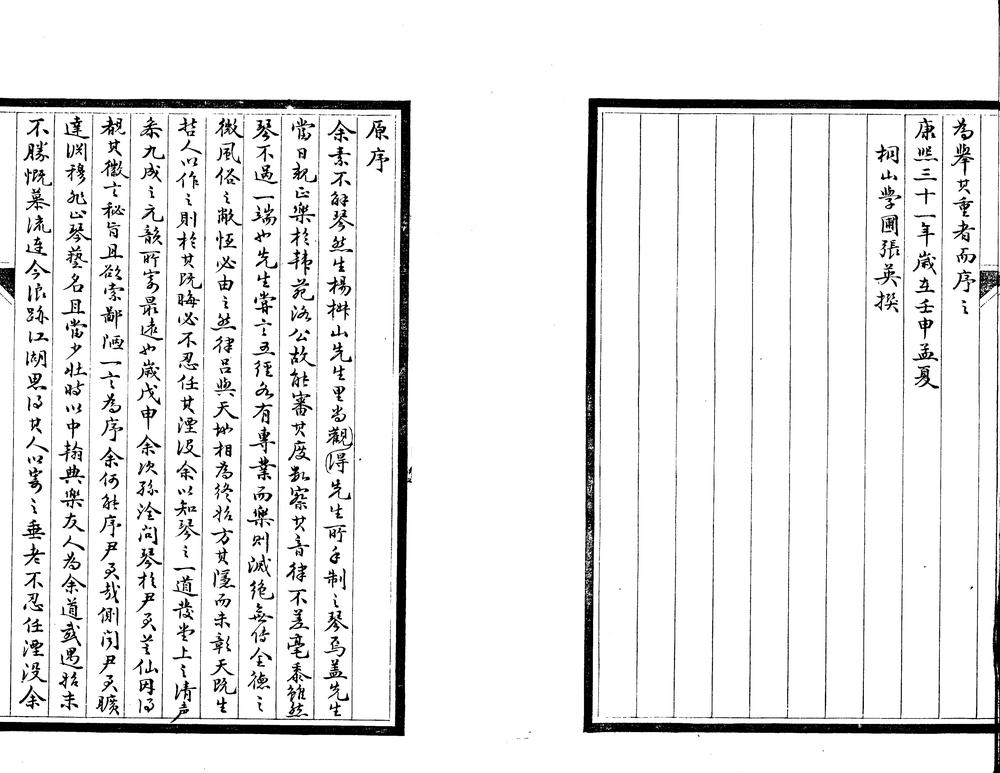 為舉其重者而序之
康熙三十一年歲在壬申孟夏
桐山學圃張英撰
原序
余素不解琴然生楊椒山先生里嘗觀得先生所手制之琴焉蓋先生
當日親正樂於韓苑洛公故能審其度數察其音律不差毫黍雖然
琴不過一端也先生嘗言五經各有專業而樂則滅絕無傳全德之
微風俗之敝恆必由之然律呂與天地相為終始方其隱而未彰天既生
哲人以作之則於其既晦必不忍任其湮沒余以知琴之一道發堂上之清聲
奏九成之元韻所寄最遠也歲戊申余次孫淦問琴於尹君芝仙因得
覩其微言秘旨且欲索鄙陋一言為序余何能序尹君哉側聞尹君曠
達淵穆非止琴藝名且當少壯時以中翰典樂友人為余道或遇始末
不勝慨慕流連今浪跡江湖思得其人以寄之垂老不忍任湮沒余